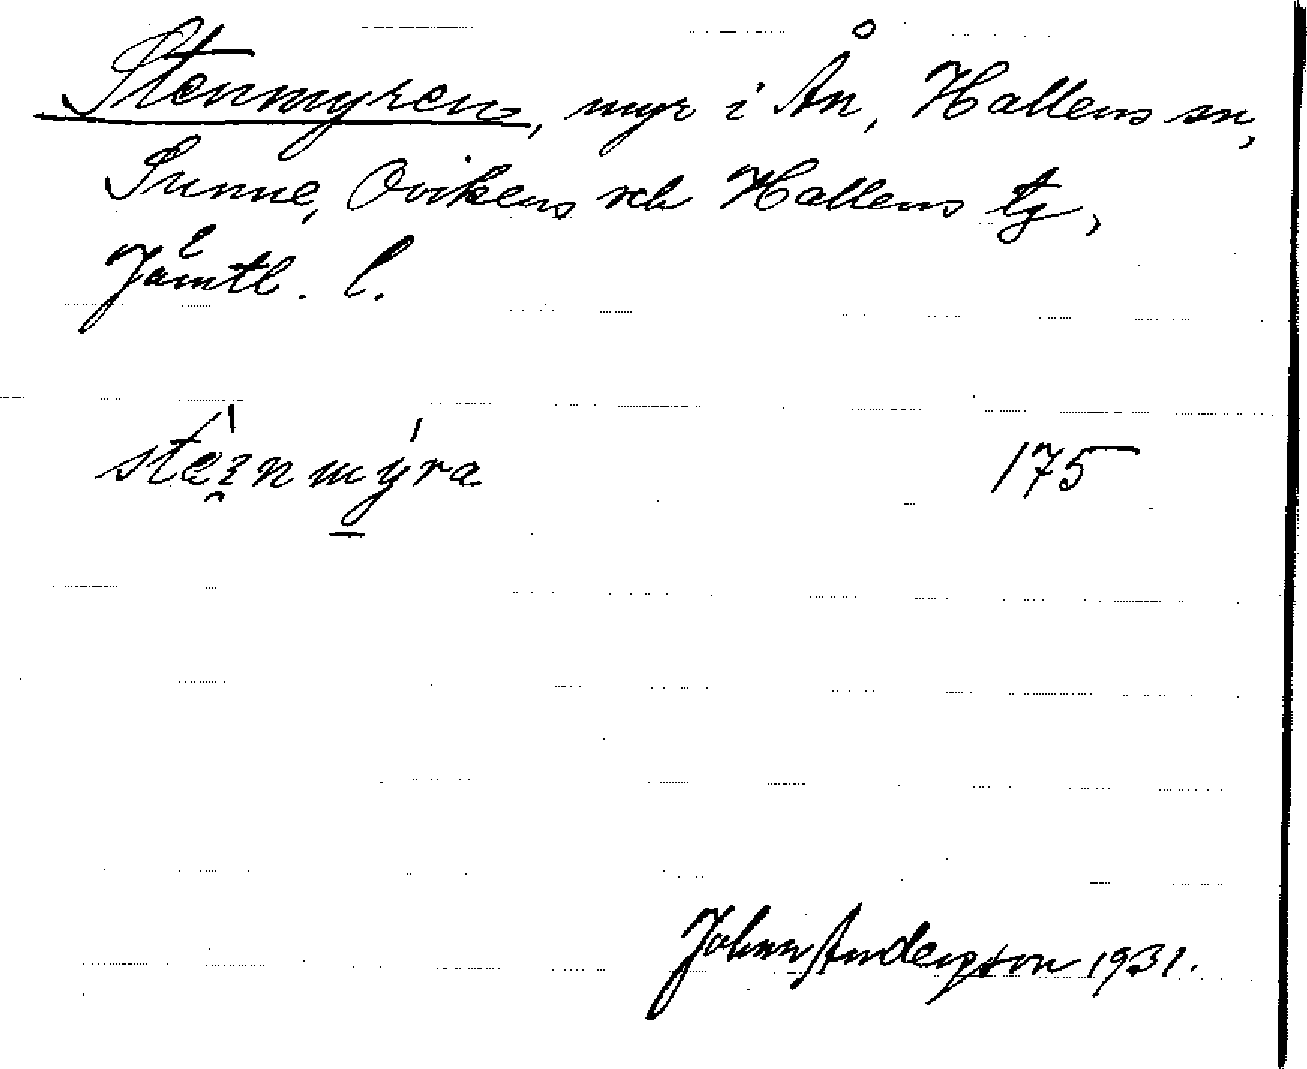 Stenmyren, myr i Ån, Hallens sn,
Sunne, Ovikens och Hallens tg,
Jämtl. l.
175
John Anderson 1931.